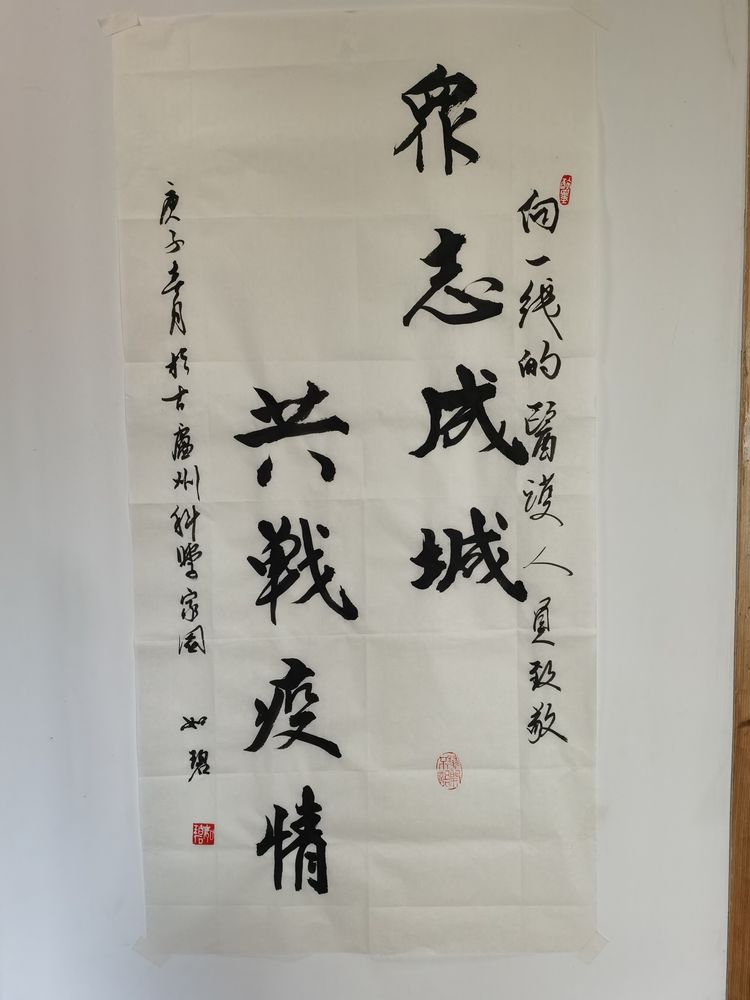 向一线的醫護人員致敬
眾志成城
共戰疫情
庚子春月於古廬州科學家園 如碧